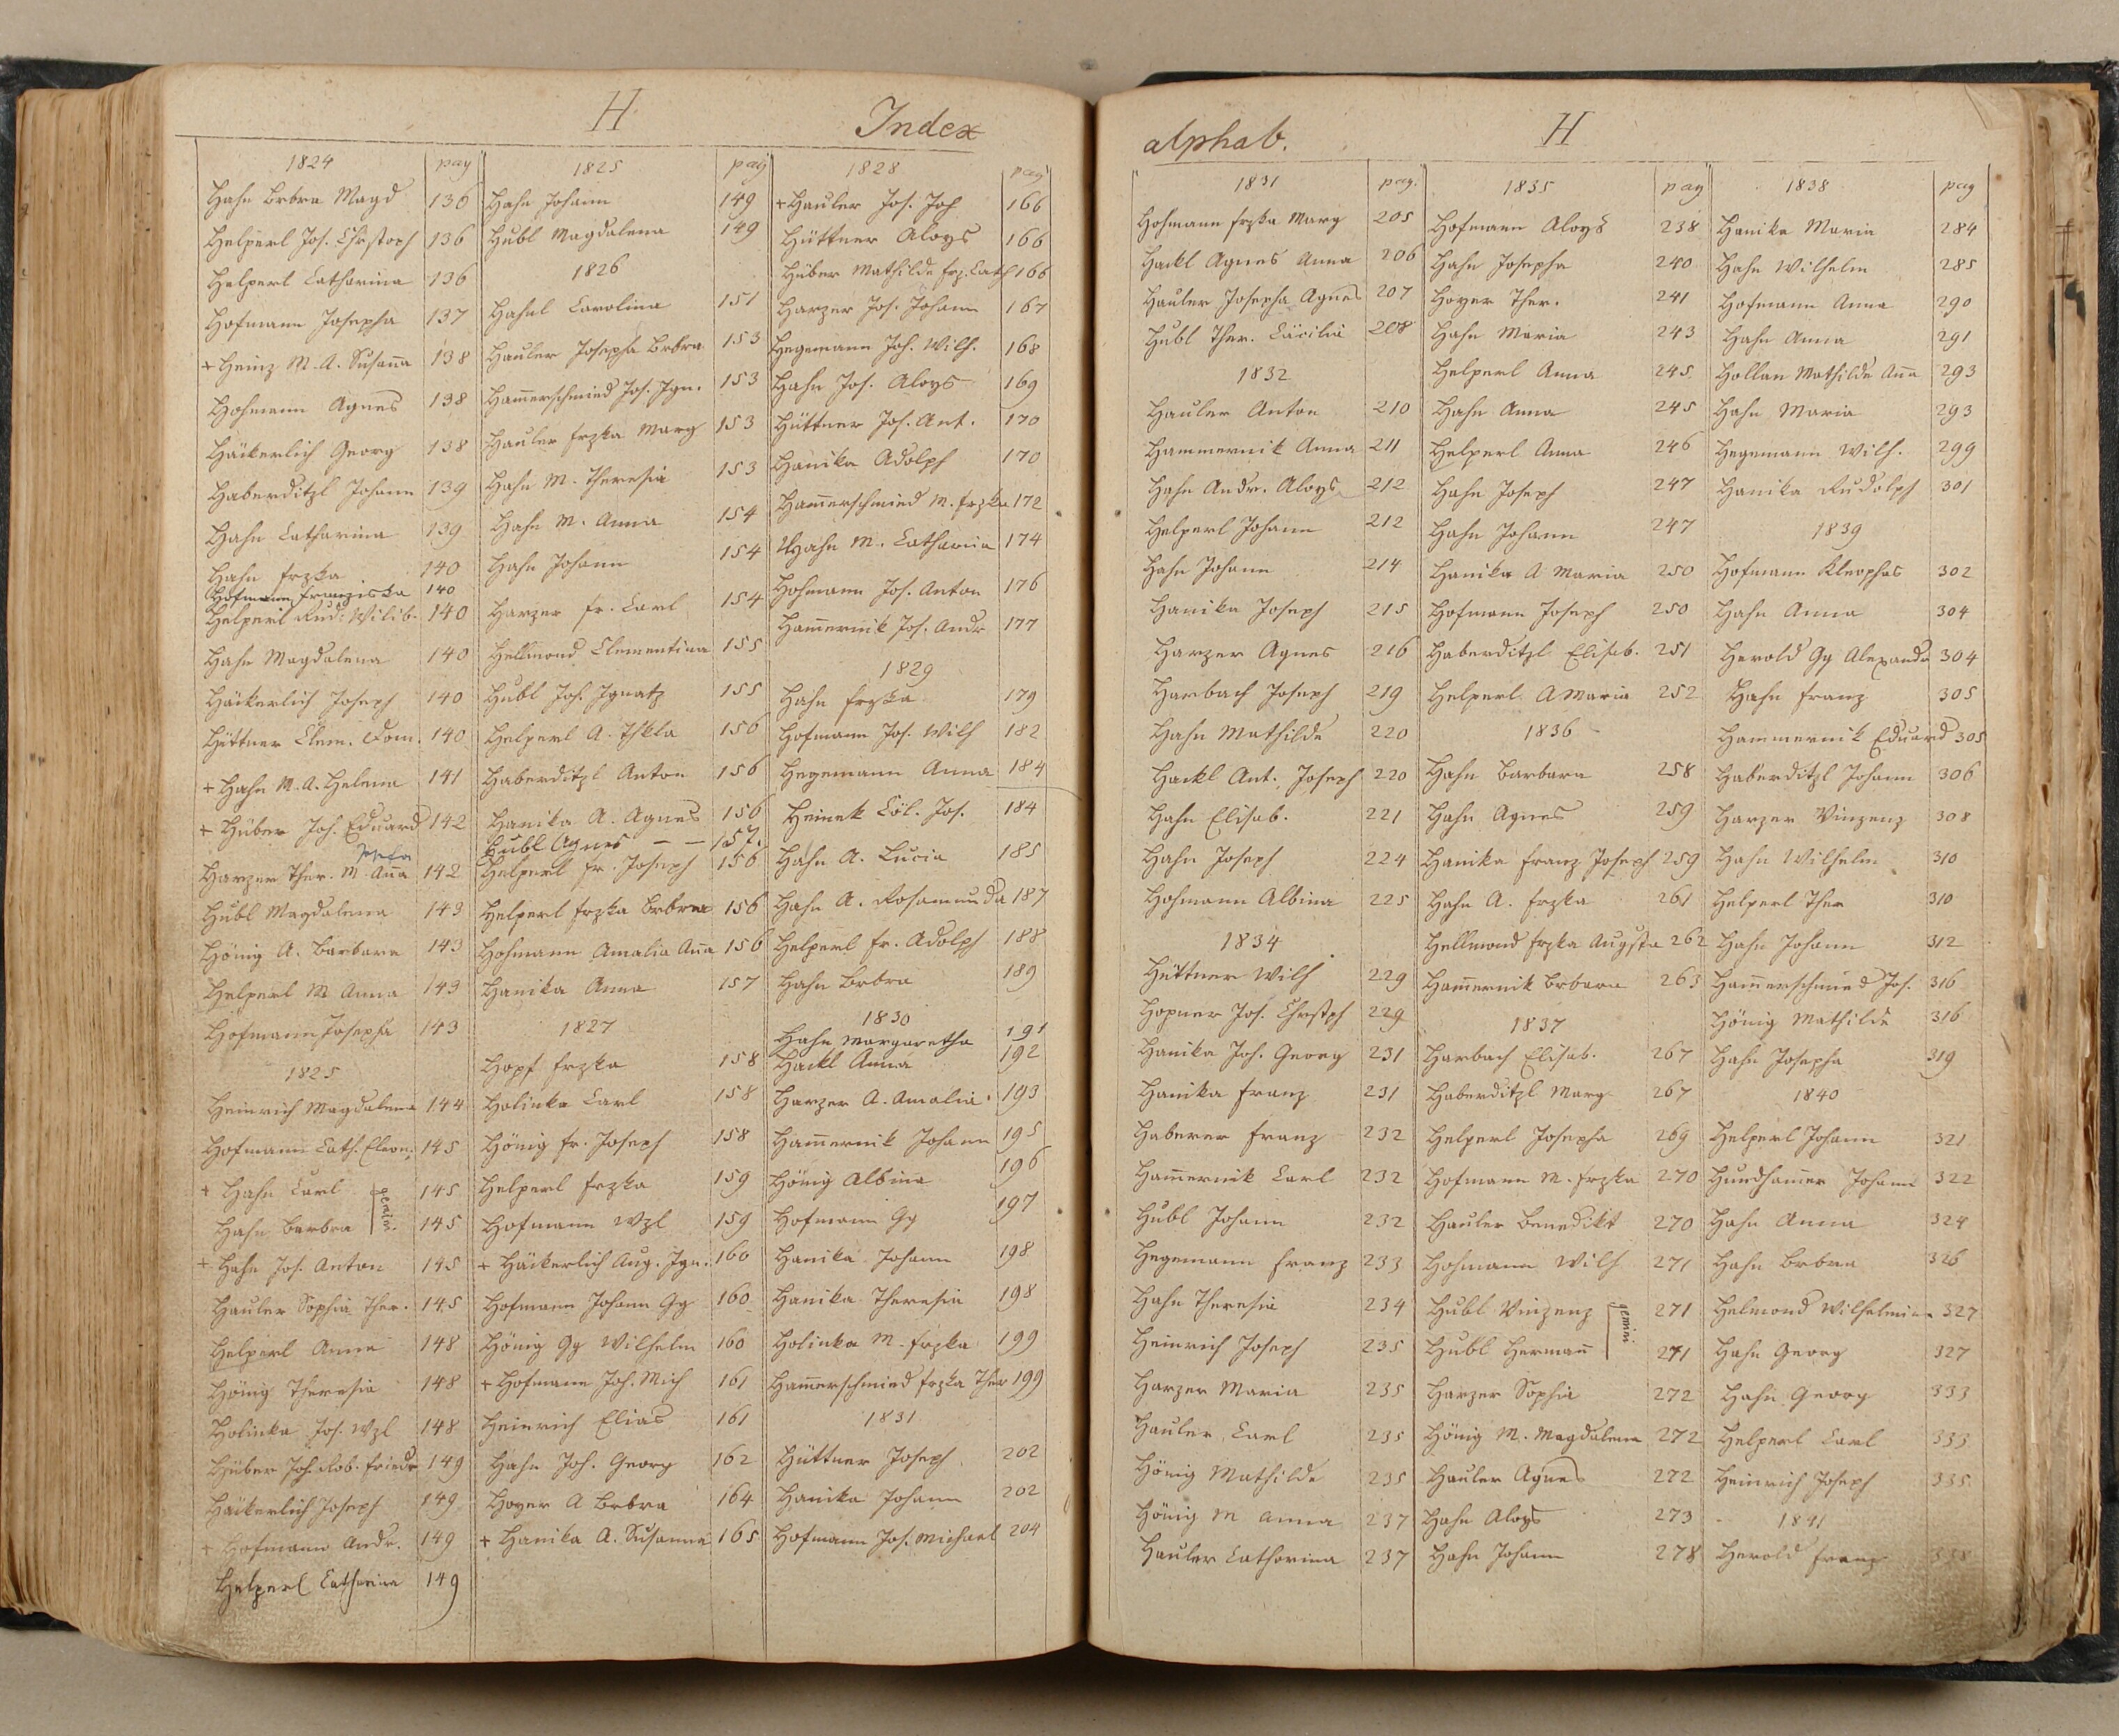 H
Index
1824 pag
Hahn Brbra Magd 136
Helperl Jos. Christoph 136
Helperl Catharina 136
Hofmann Josepha 137
+ Heinz M. A. Susaña 138
Hohmann Agnes 138
Häckerlich Georg 138
Haberditzl Johann 139
Hahn Catharina 139
Hahn Frzka 140
Hofmann Franziska 140
Helperl Rud: Wilib. 140
Hahn Magdalena 140
Häckerlich Joseph 140
Hüttner Clem. Dom. 140
+ Hahn M. A. Helena 141
+ Hüber Joh. Eduard 142
Josefa
Harzer Ther. M. Aña 142
Hübl Magdalena 143
Hönig A. Barbara 143
Helperl M Anna 143
Hofmann Josepha 143
1825
Heinrich Magdalena 144
Hofmann Cath. Eleon: 145
+ Hahn Carl 145
Hahn Barbra 145
gemin.
+ Hahn Joh. Anton 145
Hauler Sophia Ther. 145
Helperl Anna 148
Hönig Theresia 148
Holinka Jos. Wzl 148
Hüber Joh. Rob. Friedr 149
Häckerlich Joseph 149
+ Hofmann Andr. 149
Helperl Catharina 149
1825 pag
Hahn Johann 149
Hübl Magdalena 149
1826
Hahnl Carolina 151
Hauler Josepha Brbra 153
Ham̄erschmied Jos. Ign. 153
Hauler Frzka Marg 153
Hahn M. Theresia 153
Hahn M. Anna 154
Hahn Johann 154
Harzer Fr. Carl 154
Hellmond Clementina 155
Hübl Joh. Ignatz 155
Helperl A. Thkla 156
Haberditzl Anton 156
Hanika A. Agnes 156
Hubl Agnes – – 157.
Helperl Fr. Joseph 156
Helperl Frzka Brbra 156
Hohmann Amalia Aña 156
Hanika Anna 157
1827
Hopf Frzka 158
Holinka Carl 158
Hönig Fr. Joseph 158
Helperl Frzka 159
Hofmann Wzl 159
+ Häckerlich Aug. Ign. 160
Hofmann Johann Gg 160
Hönig Gg Wilhelm 160
+ Hofmann Joh. Mich 161
Heinrich Elias 161
Hahn Joh. Georg 162
Hoyer A Brbra 164
+ Hanika A. Susanna 165
1828 pag
+ Hauler Jos. Joh 166
Hüttner Aloys 166
Hüber Mathilde Frz. Cath 166
Harzer Jos. Johann 167
Hegemann Joh. Wilh. 168
Hahn Jos. Aloys 169
Hüttner Jos. Ant. 170
Hanika Adolph 170
Ham̄erschmied M. Frzka 172
Hahn M. Catharina 174
Hohmann Jos. Anton 176
Ham̄ernik Jos. Andr 177
1829
Hahn Frzka 179
Hofmann Jos. Wilh 182
Hegemann Anna 184
Heinek Cöl. Jos. 184
Hahn A. Lucia 185
Hahn A. Rosamunda 187
Helperl Fr. Adolph 188
Hahn Brbra 189
1830
Hahn Margaretha 191
Hackl Anna 192
Harzer A. Amalia 193
Ham̄ernik Johann 195
Hönig Albina 196
Hofmann Gg 197
Hanika Johann 198
Hanika Theresia 198
Holinka M. Frzka 199
Ham̄erschmied Frzka Ther 199
1831
Hüttner Joseph 202
Hanika Johann 202
Hofmann Jos. Michael 204
alphab.
H
1831 pag.
Hohmann Frzka Marg 205
Hackl Agnes Anna 206
Hauler Josepha Agnes 207
Hübl Ther. Cäcilia 208
1832
Hauler Anton 210
Hammernik Anna 211
Hahn Andr. Aloys 212
Helperl Johann 212
Hahn Johann 214
Hanika Joseph 215
Harzer Agnes 216
Harbach Joseph 219
Hahn Mathilde 220
Hackl Ant. Joseph 220
Hahn Elisab. 221
Hahn Joseph 224
Hohmann Albina 225
1834
Hüttner Wilh 229
Hopner Jos. Christph 229
Hanika Joh. Georg 231
Hanika Franz 231
Haberer Franz 232
Ham̄ernik Carl 232
Hübl Johann 232
Hegemann Franz 233
Hahn Theresia 234
Heinrich Joseph 235
Harzer Maria 235
Hauler Carl 235
Hönig Mathilde 235
Hönig M Anna 237
Hauler Catharina 237
1835 pag
Hofmann Aloys 238
Hahn Josepha 240
Hoyer Ther. 241
Hahn Maria 243
Helperl Anna 245
Hahn Anna 245
Helperl Anna 246
Hahn Joseph 247
Hahn Johann 247
Hanika A Maria 250
Hofmann Joseph 250
Haberditzl Elisab. 251
Helperl A Maria 252
1836
Hahn Barbara 258
Hahn Agnes 259
Hanika Franz Joseph 259
Hahn A. Frzka 261
Hellmond Frzka Augsta 262
Ham̄ernik Brbara 263
1837
Harbach Elisab. 267
Haberditzl Marg 267
Helperl Josepha 269
Hofmann M. Frzka 270
Hauler Benedikt 270
Hohmann Wilh 271
Hübl Vinzenz 271
Hübl Herman̄ 271
gemini
Harzer Sophia 272
Hönig M. Magdalena 272
Hauler Agnes 272
Hahn Aloys 273
Hahn Johann 278
1838 pag
Hanika Maria 284
Hahn Wilhelm 285
Hofmann Anna 290
Hahn Anna 291
Hollan Mathilde Aña 293
Hahn Maria 293
Hegemann Wilh. 299
Hanika Rudolph 301
1839
Hofmann Kleophas 302
Hahn Anna 304
Herold Gg Alexander 304
Hahn Franz 305
Hammernik Eduard 305
Haberditzl Johann 306
Harzer Vinzenz 308
Hahn Wilhelm 310
Helperl Ther 310
Hahn Johann 312
Ham̄erschmied Jos. 316
Hönig Mathilde 316
Hahn Josepha 319
1840
Helperl Johann 321
Hundham̄er Johann 322
Hahn Anna 324
Hahn Brbra 326
Helmond Wilhelmine 327
Hahn Georg 327
Hahn Georg 333
Helperl Carl 333
Heinrich Joseph 335
1841
Herold Franz 338